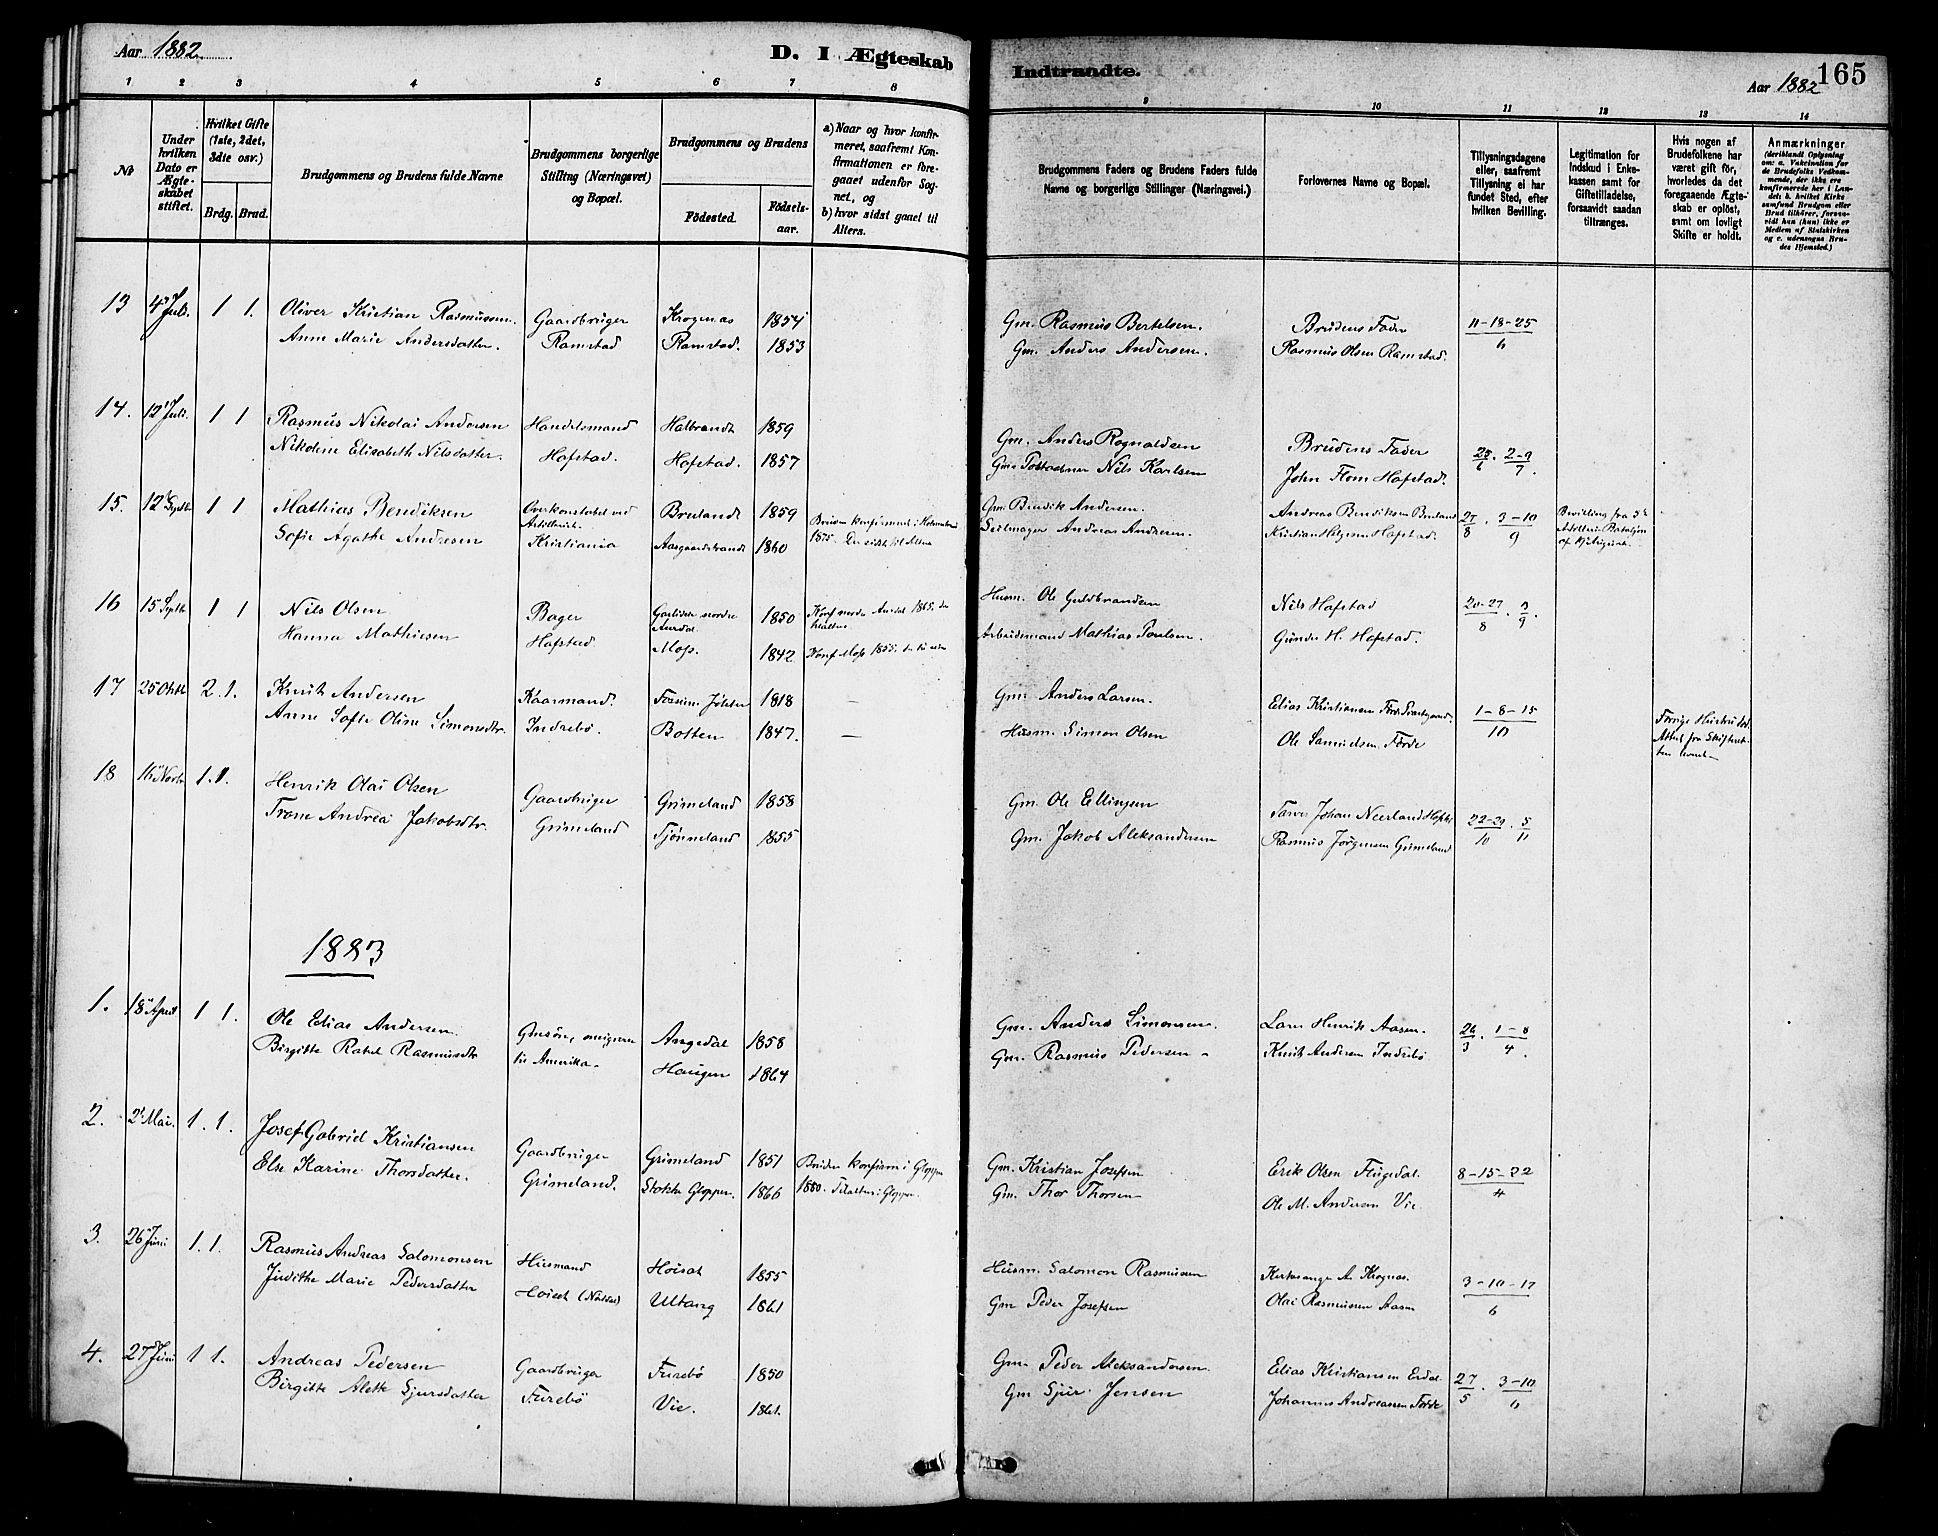 Aar 1882
D. I Ægteskab
Indtraadte.
Aar 1882
165
1 2 3 4 5 6 7 8
9 10 11 12 13 14
No
Under hvilken Dato er Ægteskabet stiftet.
Hvilket Gifte (1ste, 2det, 3dte osv.)
Brdg. Brud.
Brudgommens og Brudens fulde Navne
Brudgommens borgerlige Stilling (Næringsvei) og Bopæl.
Brudgommens og Brudens
Fødested.
Fødselsaar.
a) Naar og hvor konfirmeret, saafremt Konfirmationen er foregaaet udenfor Sognet, og
b) hvor sidst gaaet til Alters.
Brudgommens Faders og Brudens Faders fulde Navne og borgerlige Stillinger (Næringsvei.)
Forlovernes Navne og Bopæl.
Tillysningsdagene eller, saafremt Tillysning ei har fundet Sted, efter hvilken Bevilling.
Legitimation for Indskud i Enkekassen samt for Giftetilladelse, forsaavidt saadan tiltrænges.
Hvis nogen af Brudefolkene har været gift før, hvorledes da det foregaaende Ægteskab er opløst, samt om lovligt Skifte er holdt.
Anmærkninger (deriblandt Oplysning om: a. Vakcination for de Brudefolks Vedkommende, der ikke ere konfirmerede her i Landet; b. hvilket Kirkesamfund Brudgom eller Brud tilhører, forsaavidt han (hun) ikke er Medlem af Statskirken og c. udensogns Brudes Hjemsted.)
13 4 Juli. 1 1. Oliver Kristian Rasmussen. Gaardbruger Krogenæs 1854 Gm. Rasmus Bertelsen. Brudens Fader 11-18-25
Anne Marie Andersdatter. Ramstad Ramstad. 1853 Gm. Anders Andersen. Rasmus Olsen Ramstad. 6
14. 12 Juli. 1 1 Rasmus Nikolai Andersen Handelsmand Halbrandt 1859 Gm. Anders Rognaldsen Brudens Fader 25/6. 2-9/7.
Nikoline Elisabeth Nilsdatter. Hafstad. Hafstad. 1857 Nils Karlsen John Flom Hafstad.
15. 12 Septbr 1 1 Mathias Bendiksen Overkonstabel ved Artilleriet. Bruland 1859 Gm. Bendik Andersen. Andreas Bendiksen Bruland 27/8. 3-10/9
Sofie Agathe Andresen Kristiania Aasgaardstrand 1860 1875. Seilmager Andreas Andresen. Kristian Helgesen Hafstad.
16 15 Septbr 1 1 Nils Olsen Bager nordre Aurdal. 1850 Konf. nordre Aurdal 1865. Husm. Ole Guldbrandsen Nils Hafstad 20-27/8. 3/9.
Hanna Mathiesen Hafstad. Moss. 1842 Konf. Moss 1855. Arbeidsmand Mathias Gunder H. Hafstad.
17 25 Oktbr 2. 1. Knut Andersen Kaarmand. Jølster 1818 — Gm. Anders Larsen. Elias Kristiansen Førde 1-8-15
Anne Sofie Oline Simonsdtr. Indrebø. Botten 1847. — Husm. Simon Olsen Ole Samuelsen Førde 10
18 16 Novbr 1. 1. Henrik Olai Olsen Gaardbruger Grimeland 1858 Gm. Ole Ellingsen Johan Neerland 22-29/10. 5/11
Trone Andrea Jakobsdtr. Grimeland Tjønneland 1855 Gm. Jakob Aleksandersen Rasmus Jørgensen Grimeland
1883
1. 18 April 1 1. Ole Elias Andersen. Angedal 1858 Gm. Anders Simonsen. Lars Henrik Aasen. 26/3. 1-8/4.
Birgitte Rakel Rasmusdtr til Amerika. Haugen 1864 Gm. Rasmus Pedersen - Knut Andersen Indrebø
2. 2 Mai. 1. 1. Josef Gabriel Kristiansen Gaardbruger Grimeland 1851 Bruden konfirm. i Gloppen Gm. Kristian Josefsen Erik Olsen 8-15-22
Else Karine Thorsdatter. Grimeland. Gloppen. 1866 1880. Gm. Thor Thorsen Ole M. Andersen Vie. 4
3. 26 Juni 1. 1. Rasmus Andreas Salomonsen Husmand Høisæt 1855 Husm. Salomon Rasmussen Kirkesanger A. Krognæs. 3-10-17
Judithe Marie Pedersdatter Høisæt Ultang 1861 Gm Peder Josefsen Olai Rasmussen Aasen 6
4. 27 Juni 1 1. Andreas Pedersen Gaardbruger Furebø 1850 Gm. Peder Aleksandersen. Elias Kristiansen Erdal 27/5. 3-10/6
Birgitte Alette Sjursdatter Furebø Vie. 1861. Gm Sjur Jensen Johannes Andreassen Førde